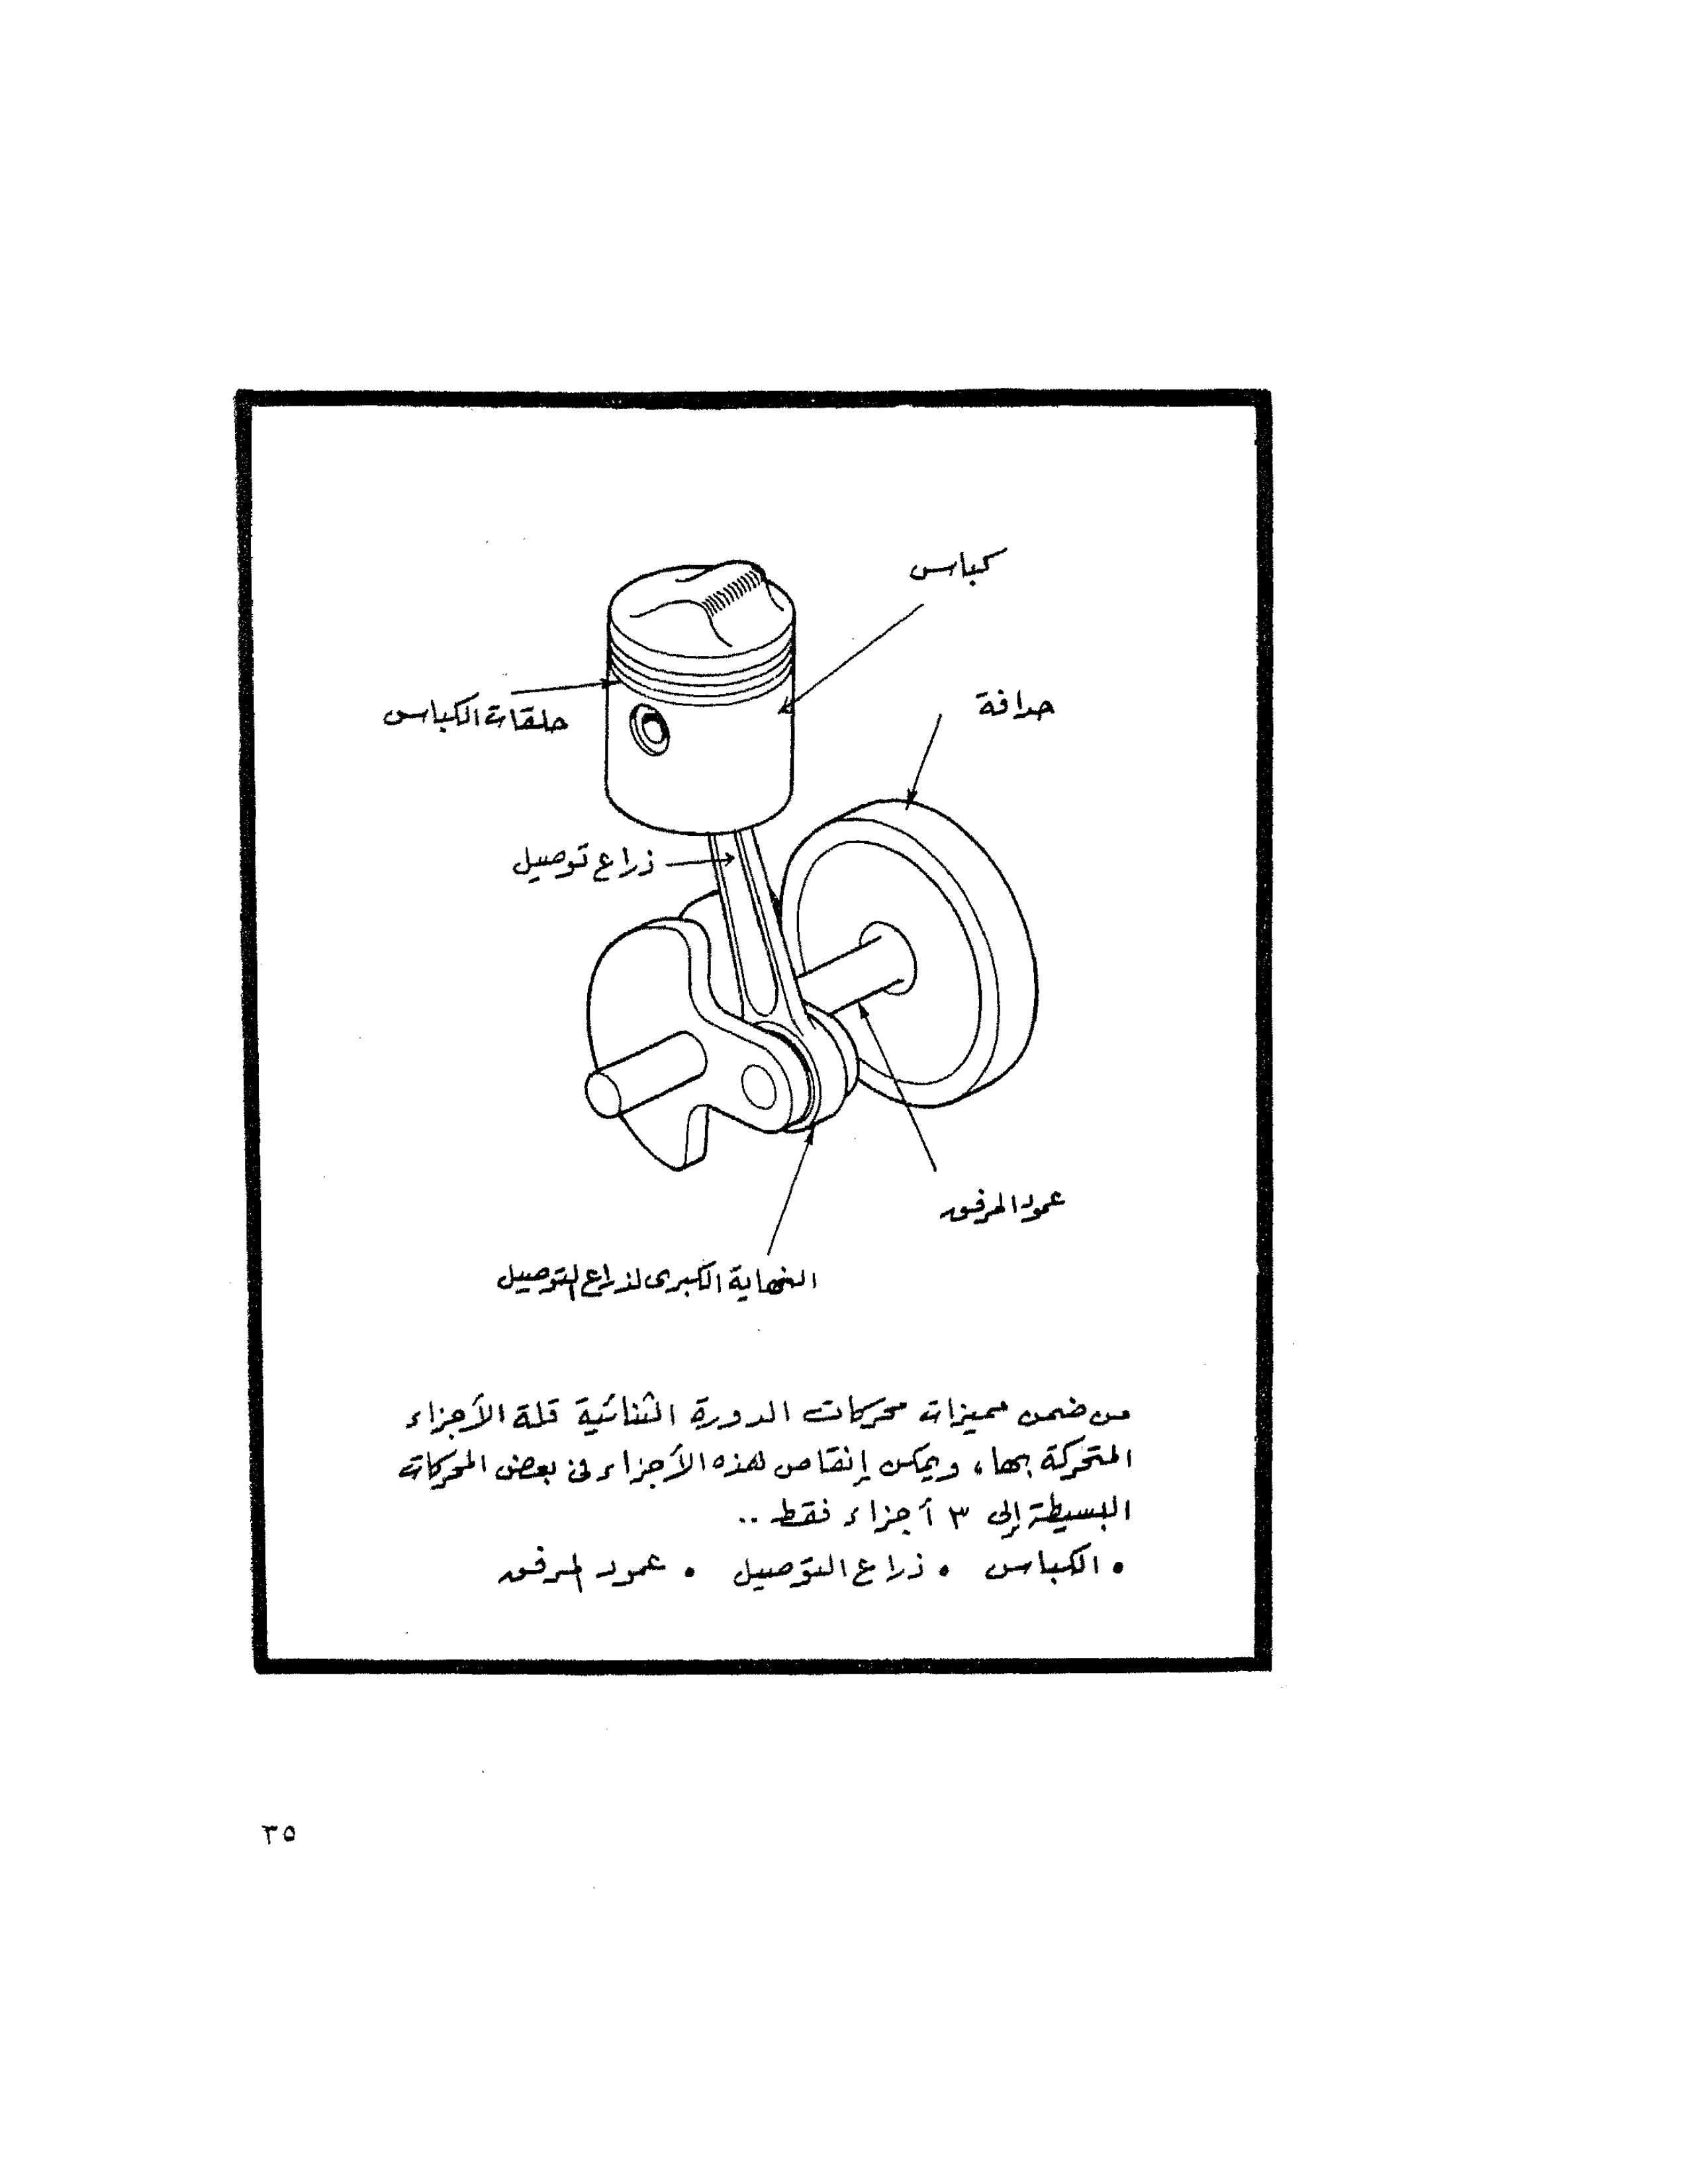 كباس
حدافة
حلقات الكباس
ذراع توصيل
عمود المرفق
النهاية الكبرى لذراع التوصيل
من ضمن مميزات محركات الدورة الثنائية قلة الأجزاء
المتحركة بها، ويمكن إنقاص هذه الأجزاء في بعض المحركات
البسيطة إلى ٣ أجزاء فقط ..
• الكباس • ذراع التوصيل • عمود المرفق
٣٥